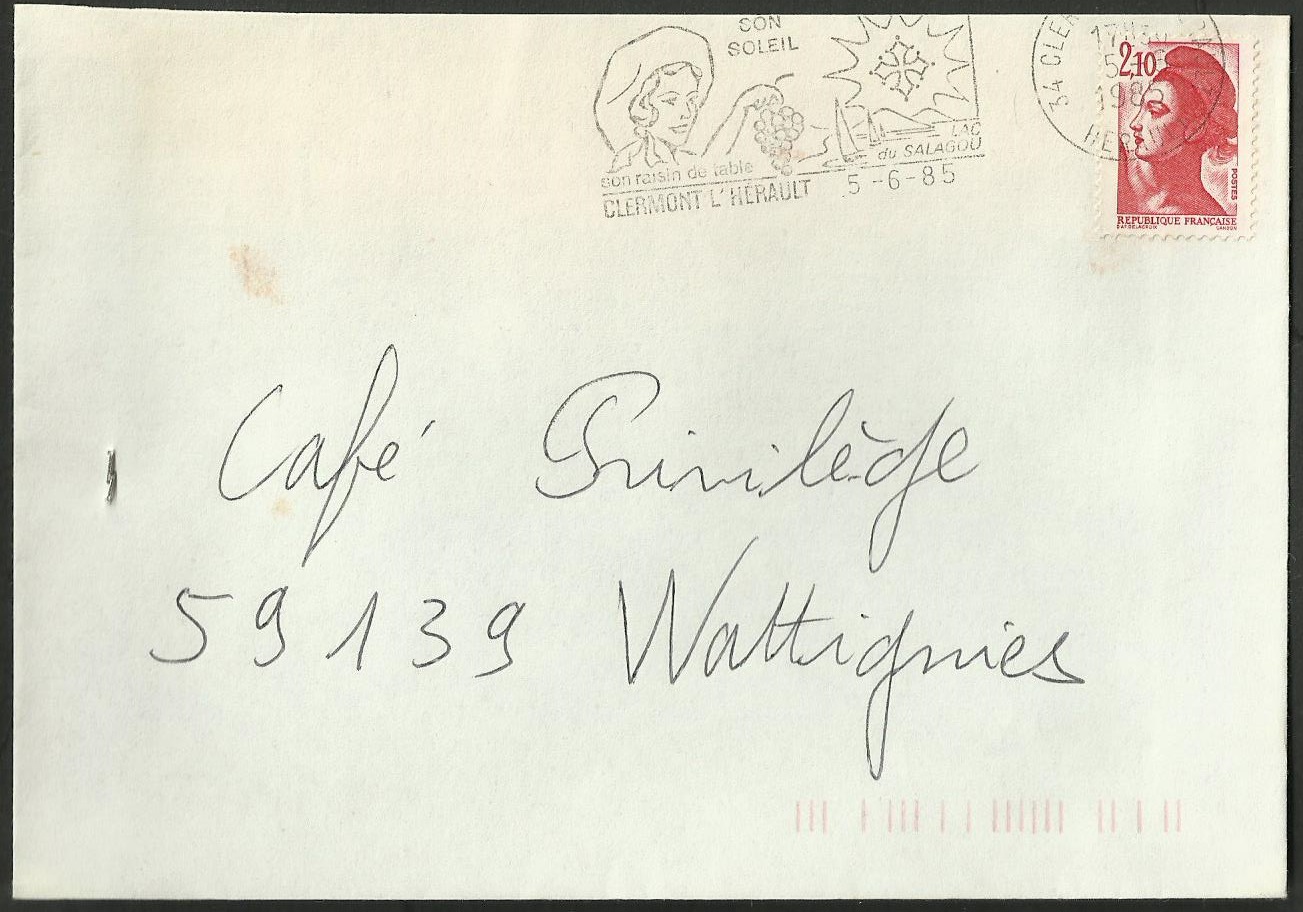 SON
SOLEIL
LAC
du SALAGOU
son raisin de table
CLERMONT L'HÉRAULT 5-6-85
34 CLER
17H30
5
1985
HERAULT
2,10
POSTES
REPUBLIQUE FRANÇAISE
D'AP. DELACROIX GANDON
Café Privilège
59139 Wattignies